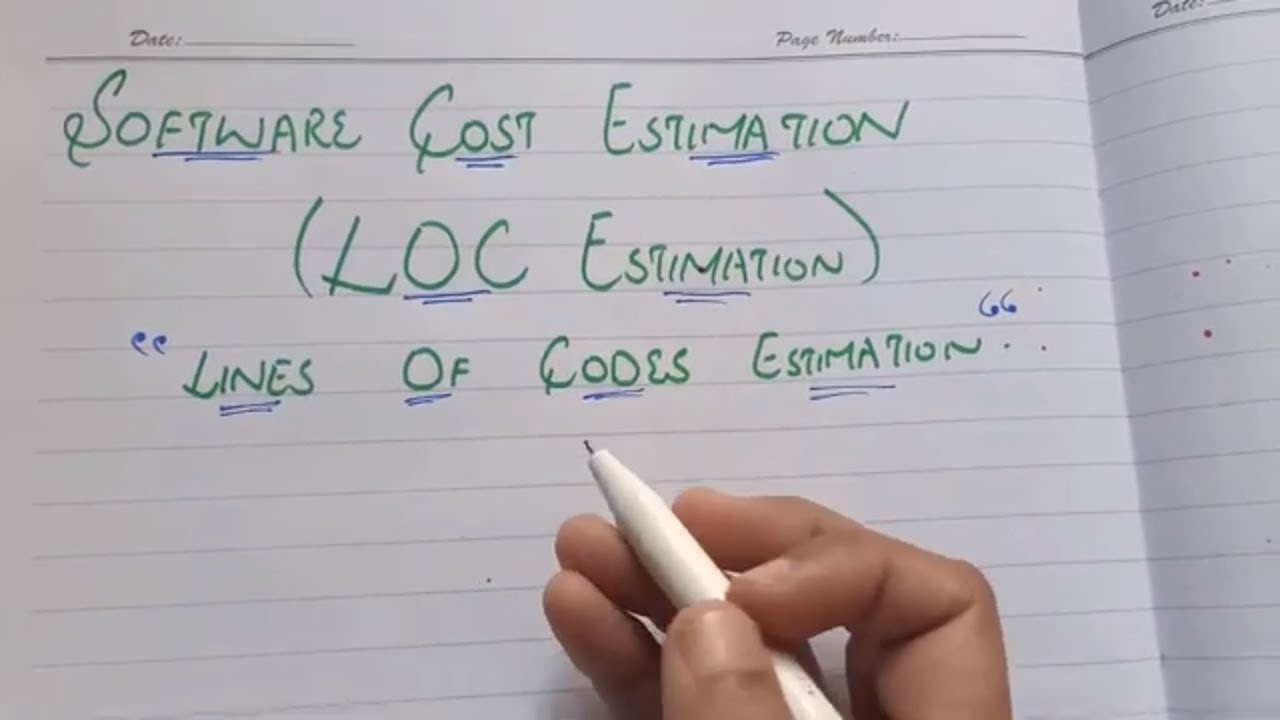 Date:
Page Number:
Date:
SOFTWARE COST ESTIMATION
(LOC ESTIMATION)
“ LINES OF CODES ESTIMATION “